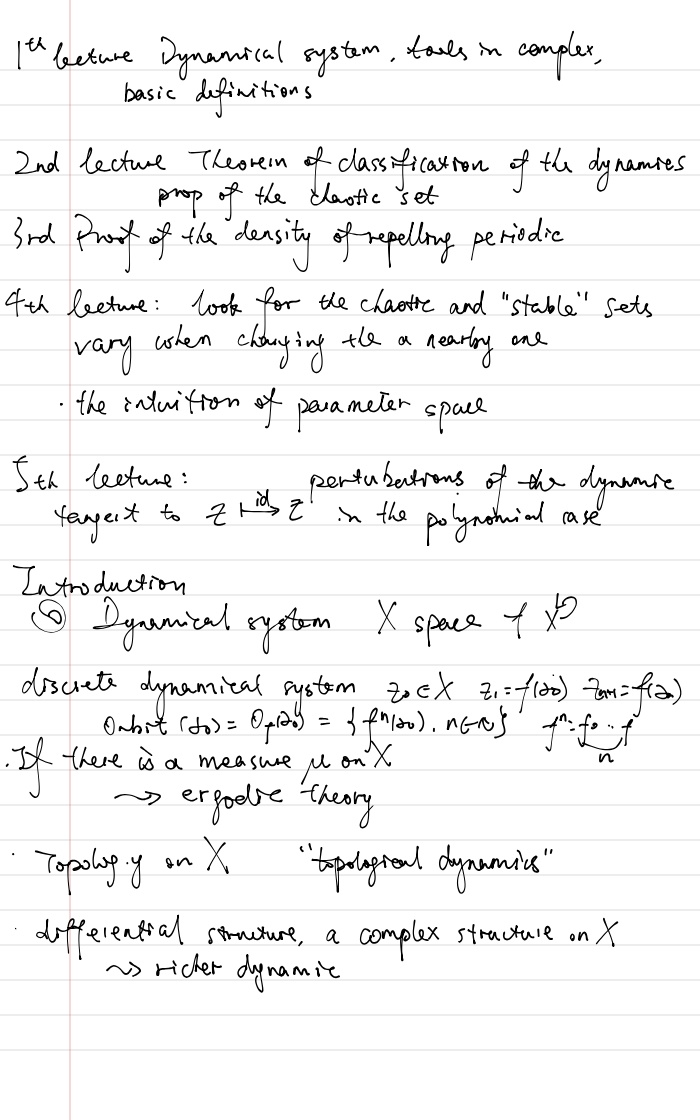 1th lecture Dynamical system, tools in complex,
basic definitions
2nd lecture Theorem of classification of the dynamics
prop of the chaotic set
3rd Proof of the density of repelling periodic
4th lecture: look for the chaotic and "stable" sets
vary when changing the a nearby one
· the intuition of parameter space
5th lecture: perturbations of the dynamic
tangent to z ↦ z id in the polynomial case
Introduction
Dynamical system X space f X↺
discrete dynamical system z₀ ∈ X z₁ = f(z₀) zₙ₊₁ = f(zₙ)
Orbit (z₀) = O_f(z₀) = {fⁿ(z₀), n∈ℕ} fⁿ = f∘··f n
· If there is a measure μ on X
⇝ ergodic theory
· Topology on X "topological dynamics"
· differential structure, a complex structure on X
⇝ richer dynamic